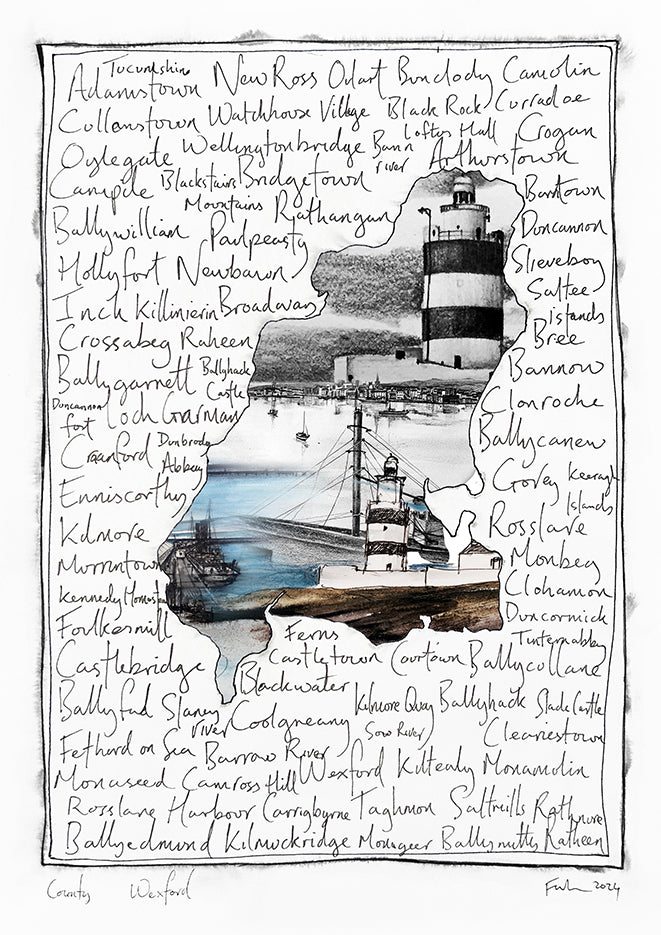 Tucunshin
Adamstown New Ross Oulart Bunclody Camolin
Cullenstown Watchhouse Village Black Rock Curracloe
Oylegate Wellingtonbridge Bann river Loftus Hall Crogan
Campile Blackstairs Mountains Bridgetown Arthurstown Barntown
Ballywilliam Paulpeasty Rathangan Duncannon
Hollyfort Newbawn Slieveboy
Inch Killinierin Broadway Saltee islands
Crossabeg Raheen Bree
Ballygarrett Ballyhack Castle Bannow
Duncannon fort Loch Garman Clonroche
Craanford Dunbrody Abbey Ballycanew
Enniscorthy Gorey Keeragh Islands
Kilmore Rosslare
Murrintown Monbeg
Kennedy Homestead Clohamon
Foulkesmill Ferns Duncormick
Castlebridge Castletown Courtown Ballycullane Tinternabbey
Ballyfad Slaney river Blackwater Kilmore Quay Ballyhack Slade Castle
Coolgreany Sow River Cleariestown
Fethard on Sea Barrow River Wexford Kiltealy Monamolin
Monaseed Camross Hill
Rosslare Harbour Carrigbyrne Taghmon Saltmills Rathnure
Ballyedmund Kilmuckridge Monageer Ballymitty Ratheen
County Wexford 2024